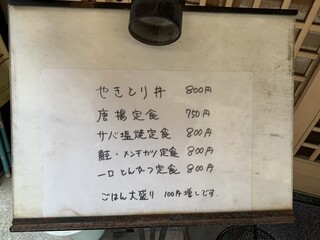 やきとり丼 800円
唐揚定食 750円
サバ塩焼定食 800円
鮭・メンチカツ定食 800円
一口とんかつ定食 800円
ごはん大盛り 100円増しです.